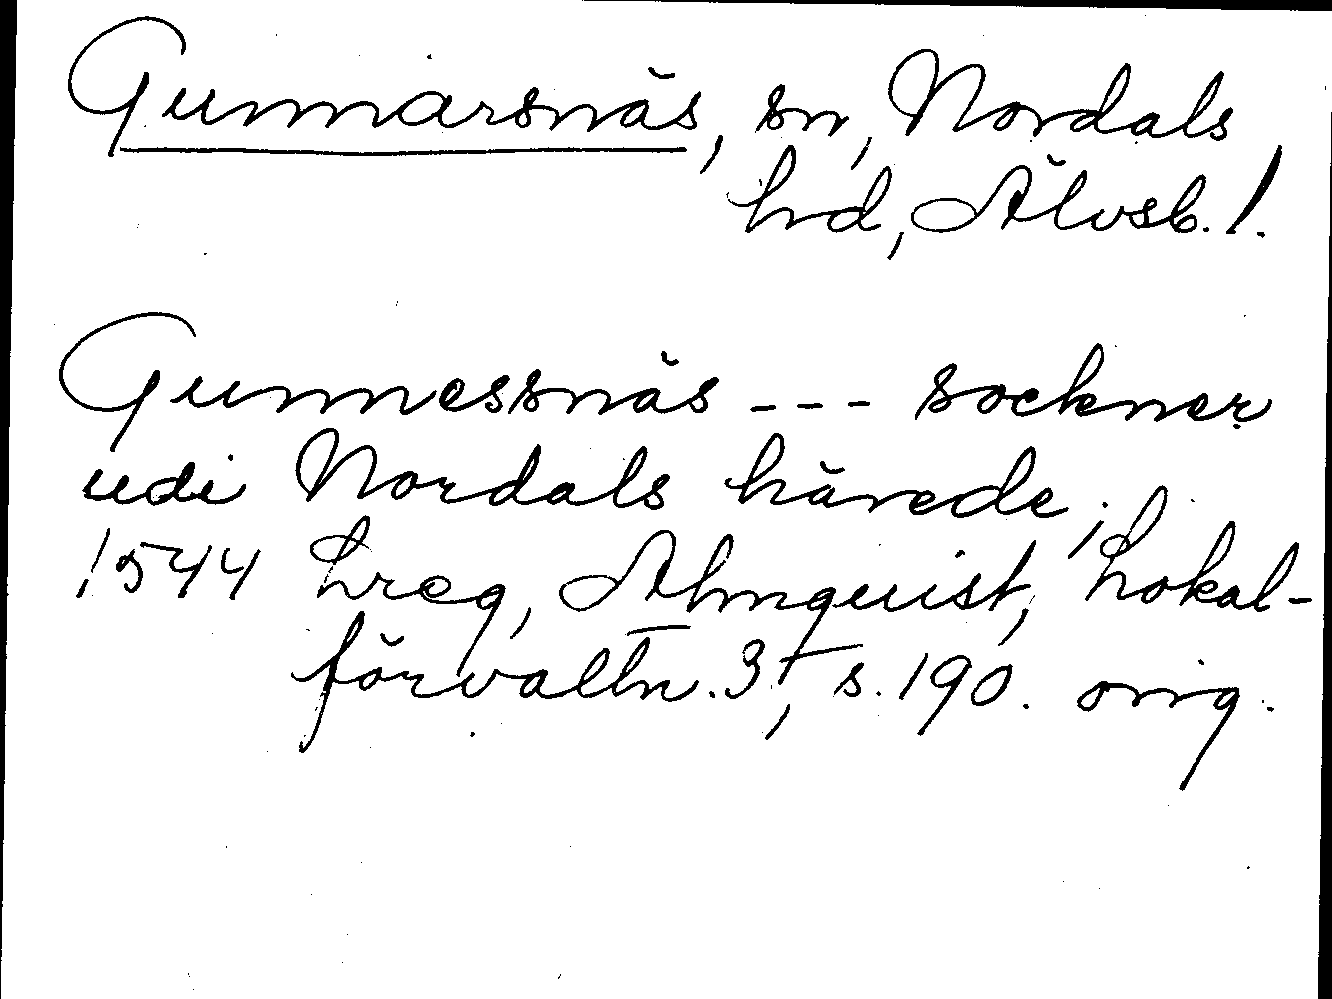 Gunnarsnäs, sn, Nordals
hd, Älvsb. l.
Gunnessnäs --- sockner
udi Nordals härede;
1544 Lreg, Almquist, Lokal-
förvaltn. 3, s. 190. orig.